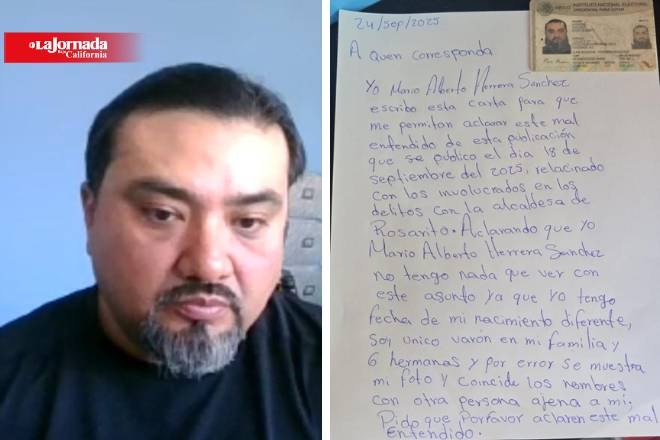 LaJornada
Baja
California
24/sep/2025
INSTITUTO NACIONAL ELECTORAL
A Quen corresponda
Yo Mario Alberto Herrera Sanchez
escribo esta carta para que
me permitan aclarar este mal
entendido de esta publicación
que se publico el dia 18 de
septiembre del 2025, relacinado
con los involucrados en los
delitos con la alcaldesa de
Rosarito. Aclarando que Yo
Mario Alberto Herrera Sanchez
no tengo nada que ver con
este asunto ya que yo tengo
fecha de mi nacimiento diferente,
soy unico varón en mi familia y
6 hermanas y por error se muestra
mi foto y coincide los nombres
con otra persona ajena a mi.
Pido que porfavor aclaren este mal
entendido.